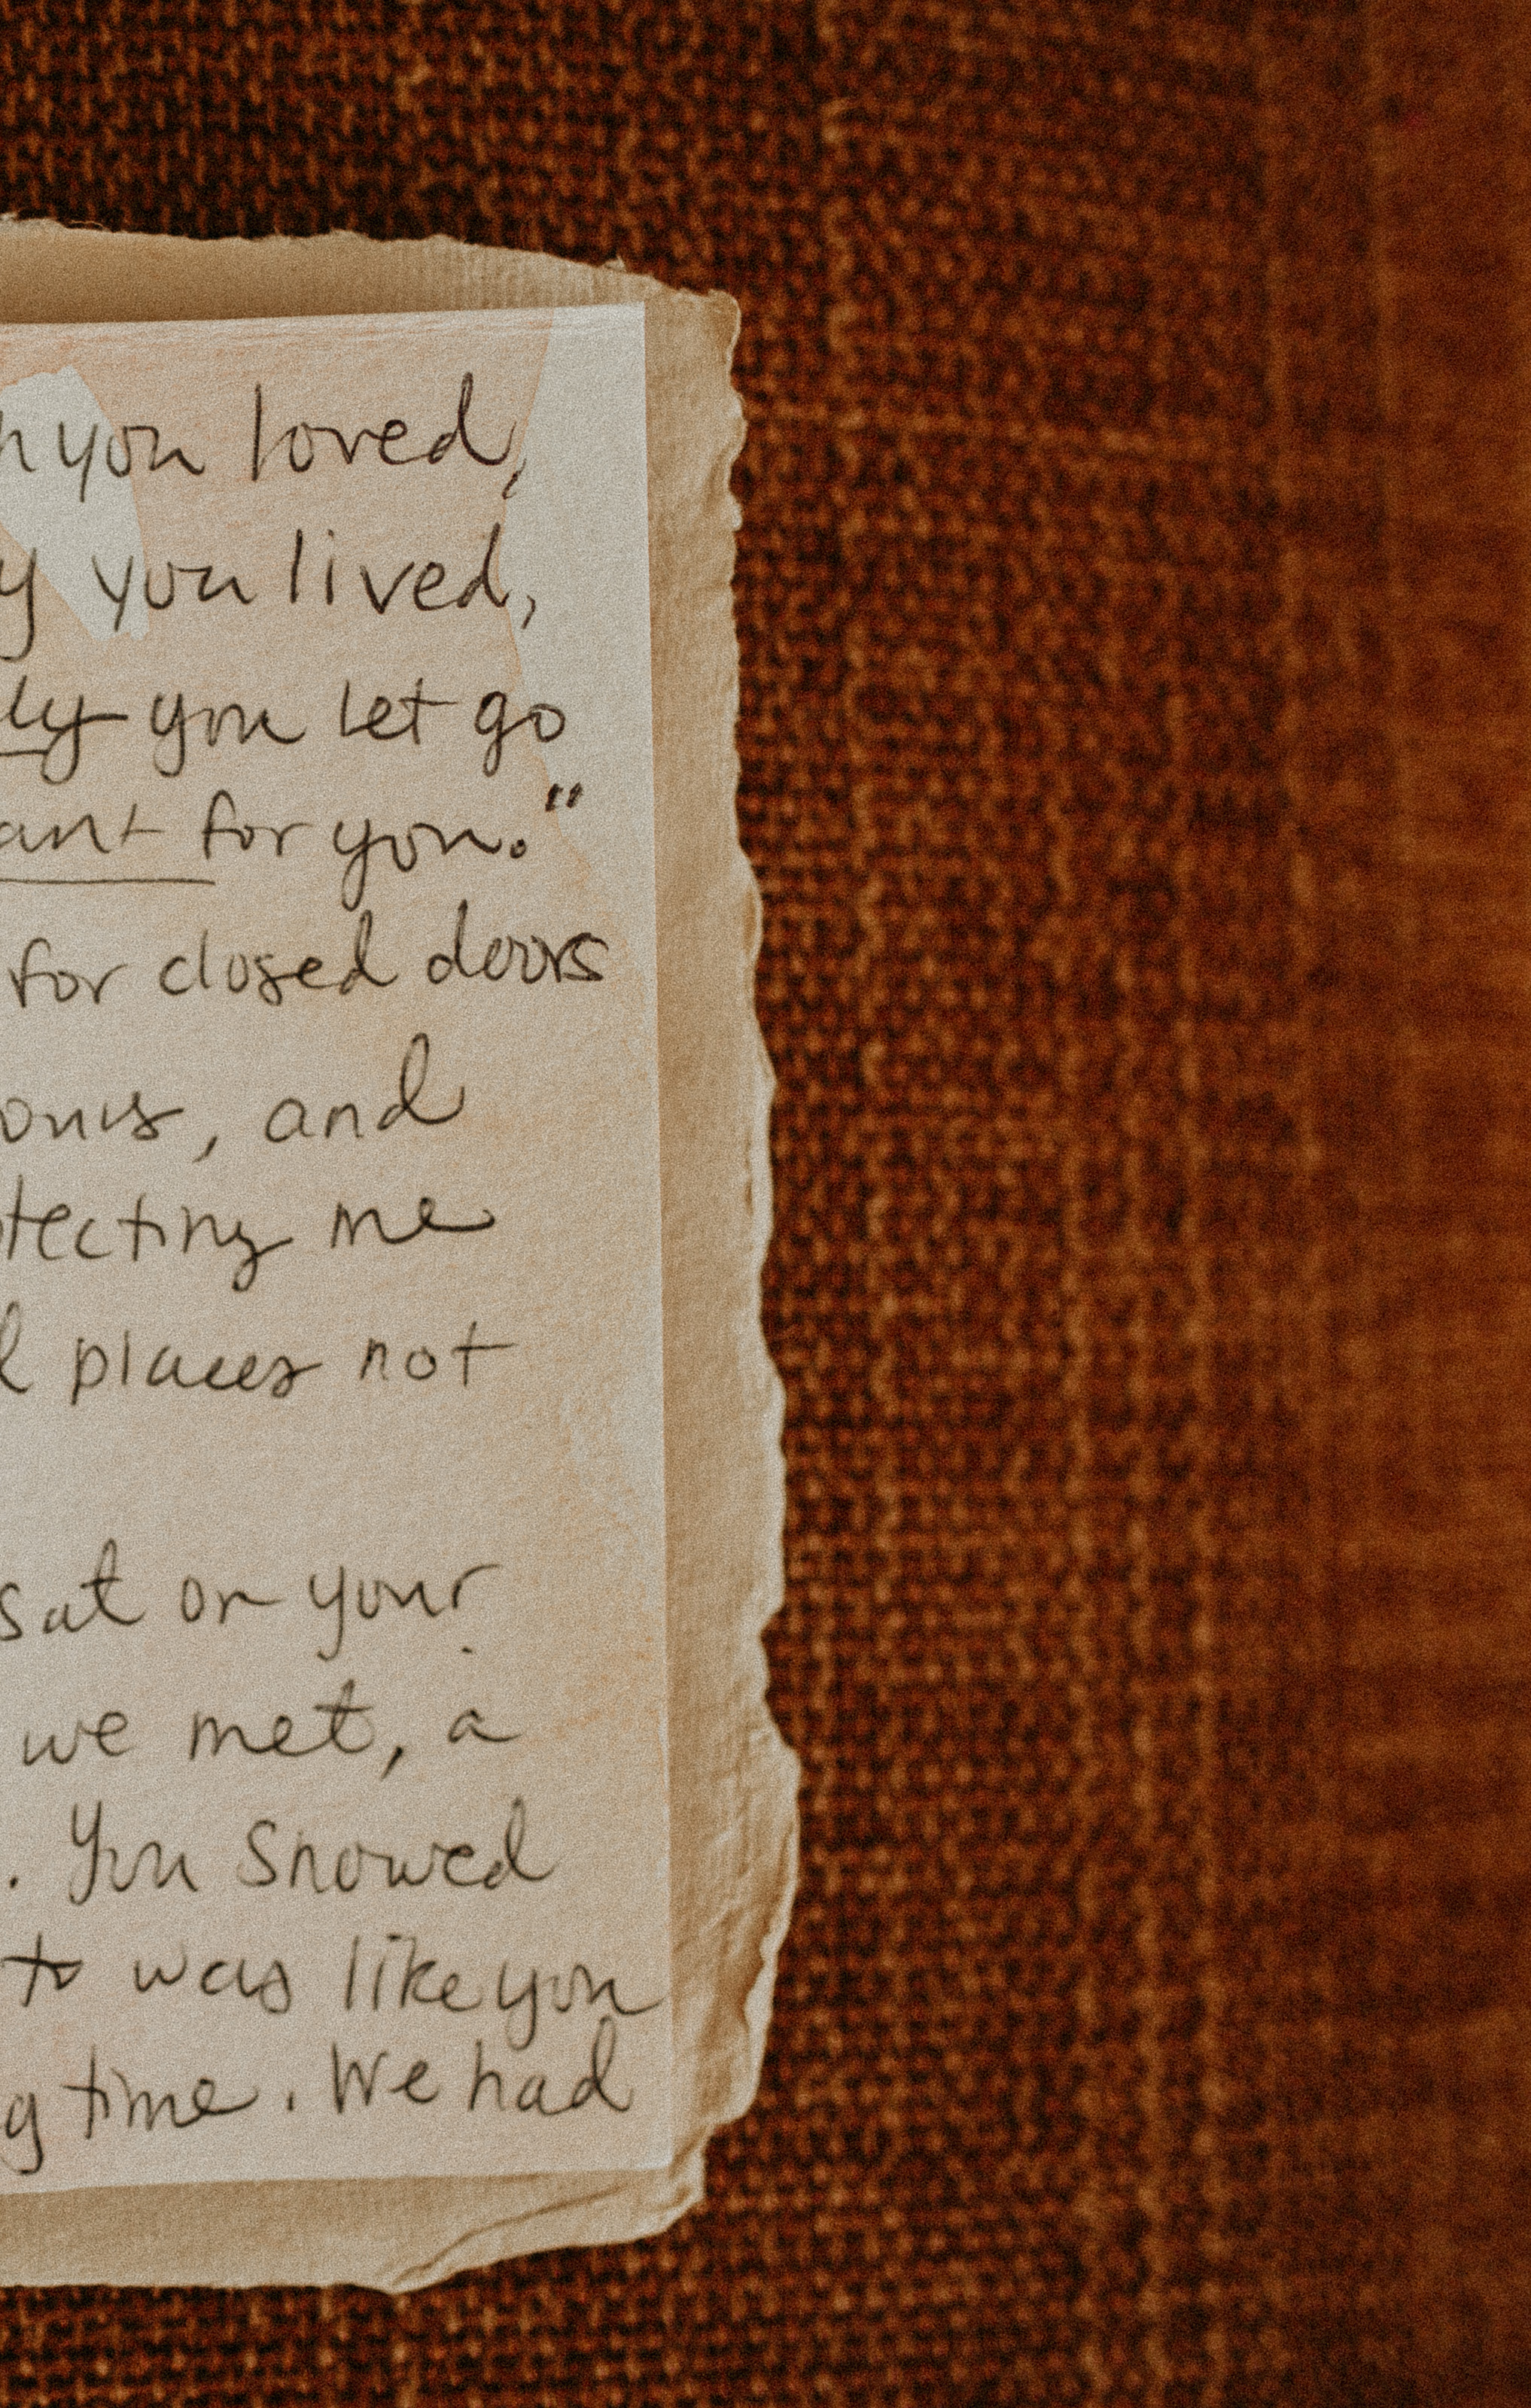 h you loved,
y you lived,
ly you let go
ant for you."
for closed doors
, and
tecting me
places not
sat on your
we met, a
. You showed
was like you
g time. We had